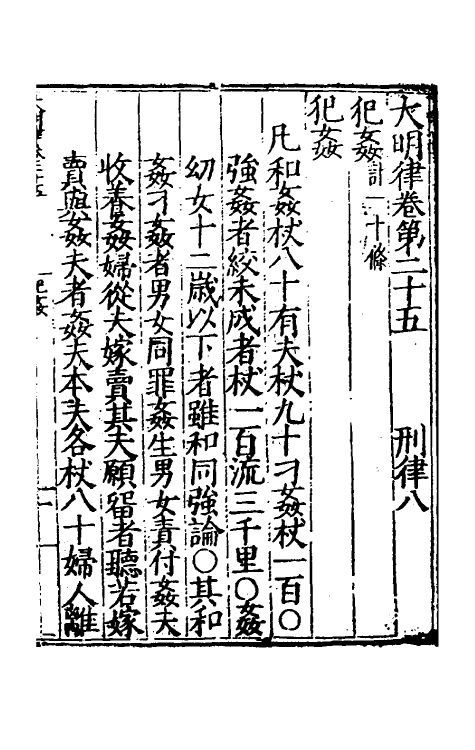 大明律卷第二十五　刑律八
犯姦計一十條
犯姦
凡和姦杖八十有夫杖九十刁姦杖一百〇
強姦者絞未成者杖一百流三千里〇姦
幼女十二歲以下者雖和同強論〇其和
姦刁姦者男女同罪姦生男女責付姦夫
收養姦婦從夫嫁賣其夫願留者聽若嫁
賣與姦夫者姦夫本夫各杖八十婦人離